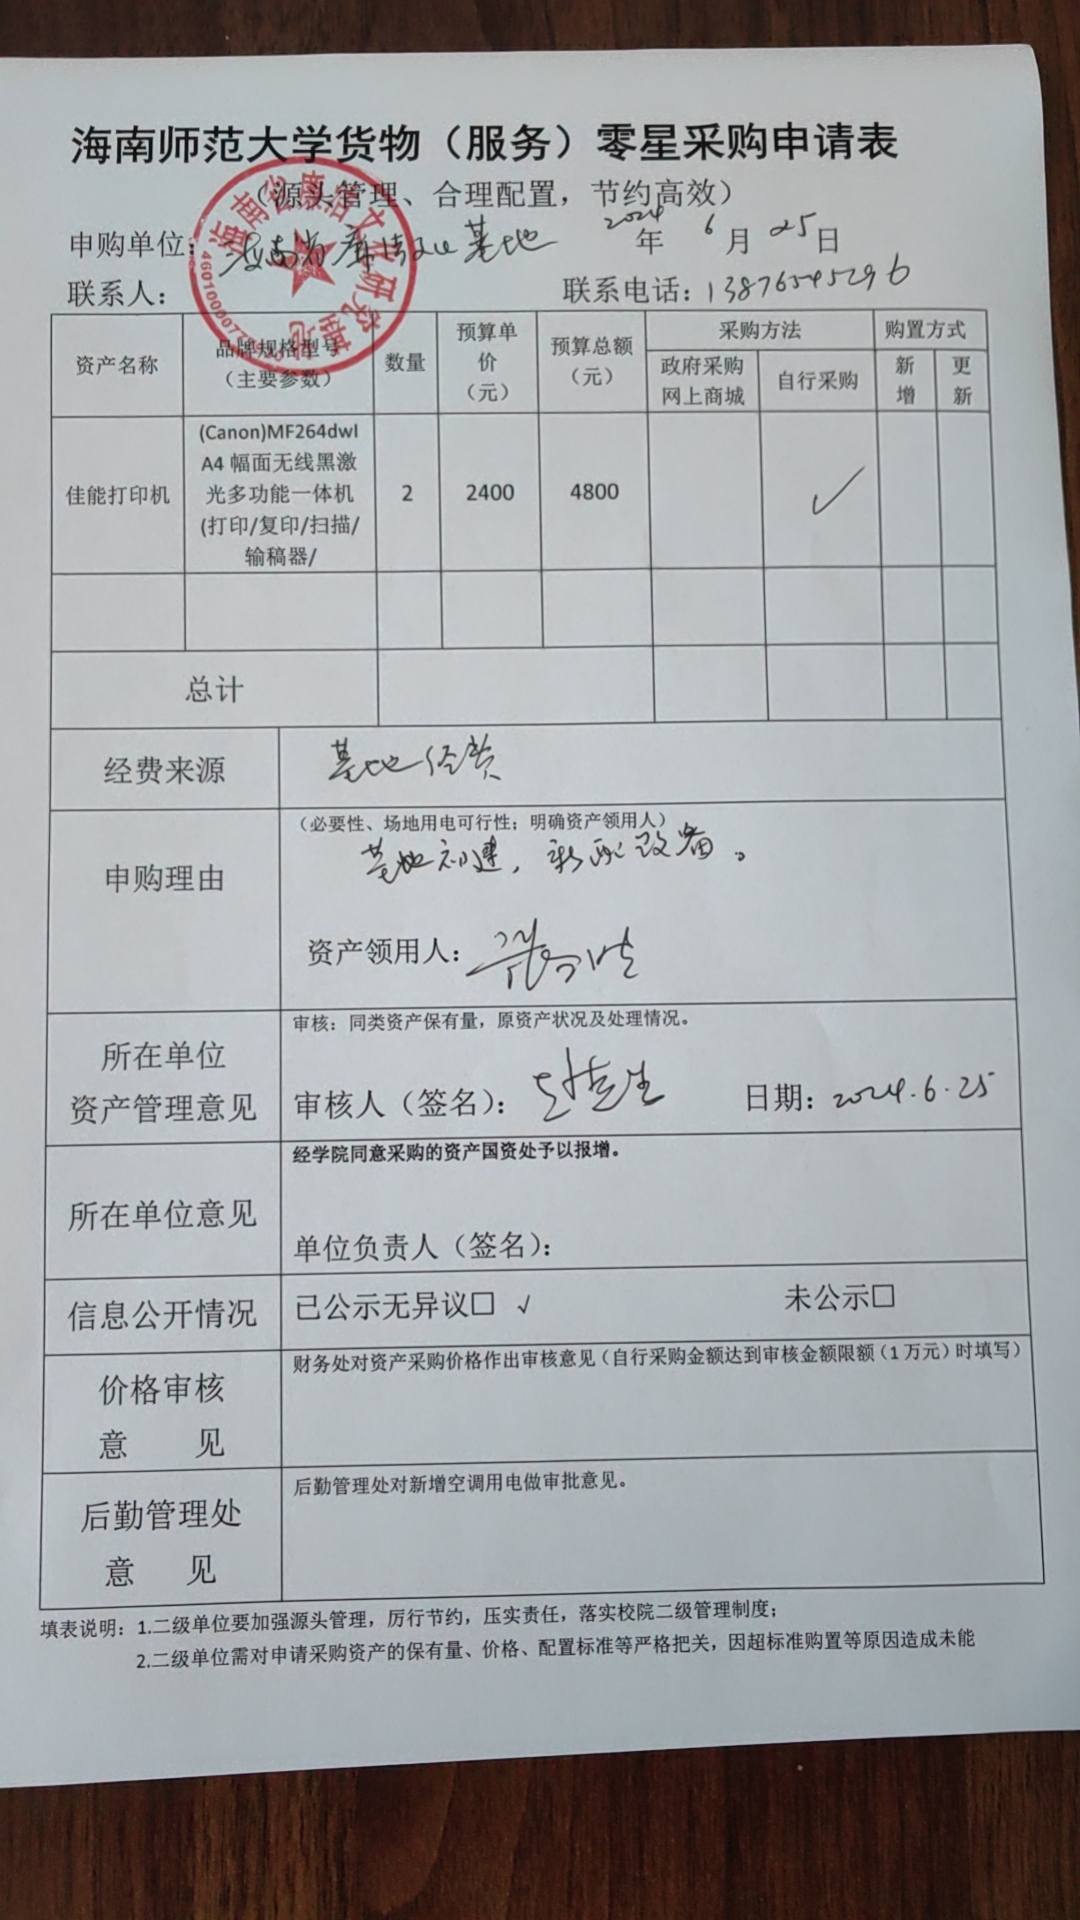 海南师范大学货物（服务）零星采购申请表
（源头管理、合理配置，节约高效）
申购单位：海南省廉洁文化基地 2024年6月25日
海南省廉洁文化研究基地
联系人： 联系电话：13876545296
资产名称 品牌规格型号（主要参数） 数量 预算单价（元） 预算总额（元） 采购方法 购置方式
政府采购网上商城 自行采购 新增 更新
佳能打印机 (Canon)MF264dwl 2 2400 4800 ✓
A4 幅面无线黑激
光多功能一体机
(打印/复印/扫描/
输稿器/
总计
经费来源 基地经费
申购理由 （必要性、场地用电可行性；明确资产领用人）
基地初建，新配设备。
资产领用人：
所在单位
资产管理意见
审核：同类资产保有量，原资产状况及处理情况。
审核人（签名）： 日期：2024.6.25
所在单位意见
经学院同意采购的资产国资处予以报增。
单位负责人（签名）：
信息公开情况 已公示无异议□ √ 未公示□
价格审核
意 见
财务处对资产采购价格作出审核意见（自行采购金额达到审核金额限额（1 万元）时填写）
后勤管理处
意 见
后勤管理处对新增空调用电做审批意见。
填表说明：1.二级单位要加强源头管理，厉行节约，压实责任，落实校院二级管理制度；
2.二级单位需对申请采购资产的保有量、价格、配置标准等严格把关，因超标准购置等原因造成未能